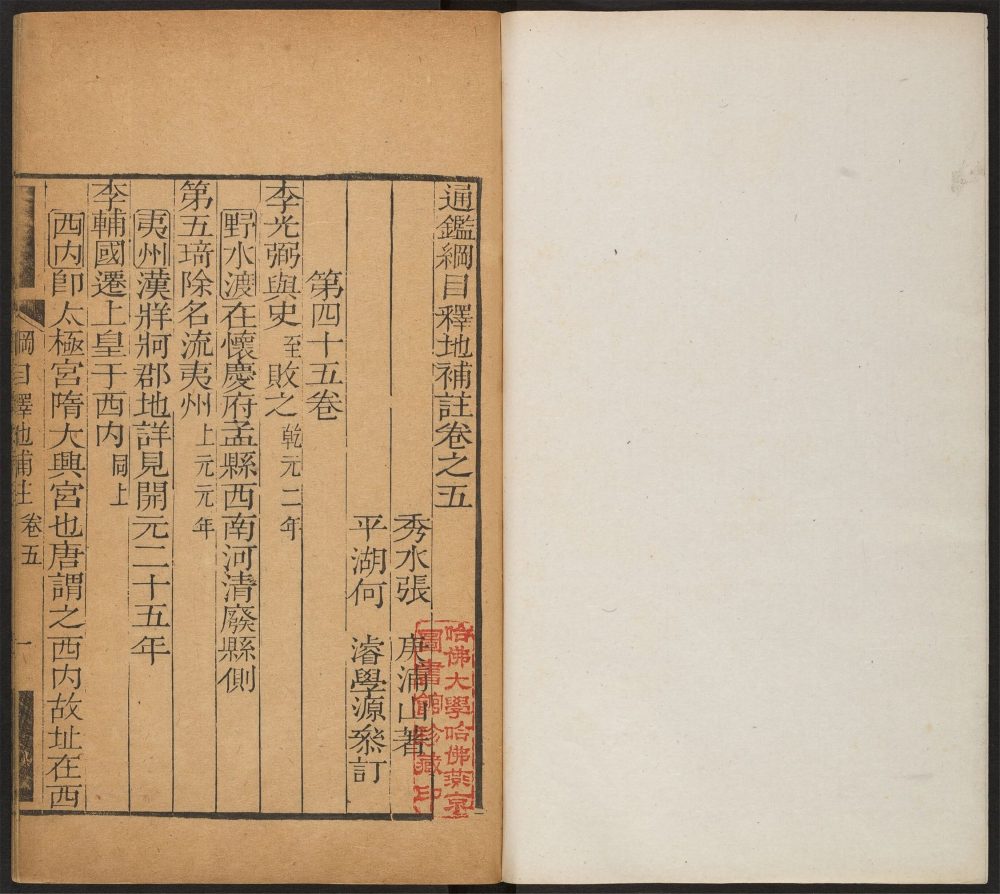 通鑑綱目釋地補註卷之五
秀水張庚浦山著
平湖何濬學源叅訂
第四十五卷
李光弼與史至敗之乾元二年
野水渡在懷慶府孟縣西南河清廢縣側
第五琦除名流夷州上元元年
夷州漢牂牁郡地詳見開元二十五年
李輔國遷上皇于西内同上
西内卽太極宮隋大興宮也唐謂之西内故址在西
綱目釋地補註 卷五 一
哈佛大學哈佛燕京
圖書館珍藏印